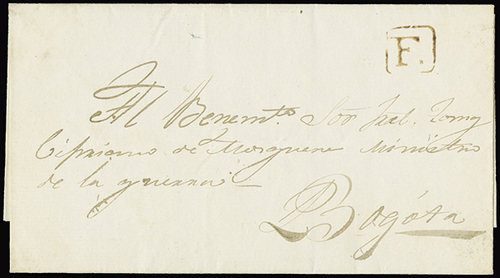 F.
Al Benemto. Sor Jral. Tomas
Cipriano de Mosquera Ministro
de la guerra
Bogóta